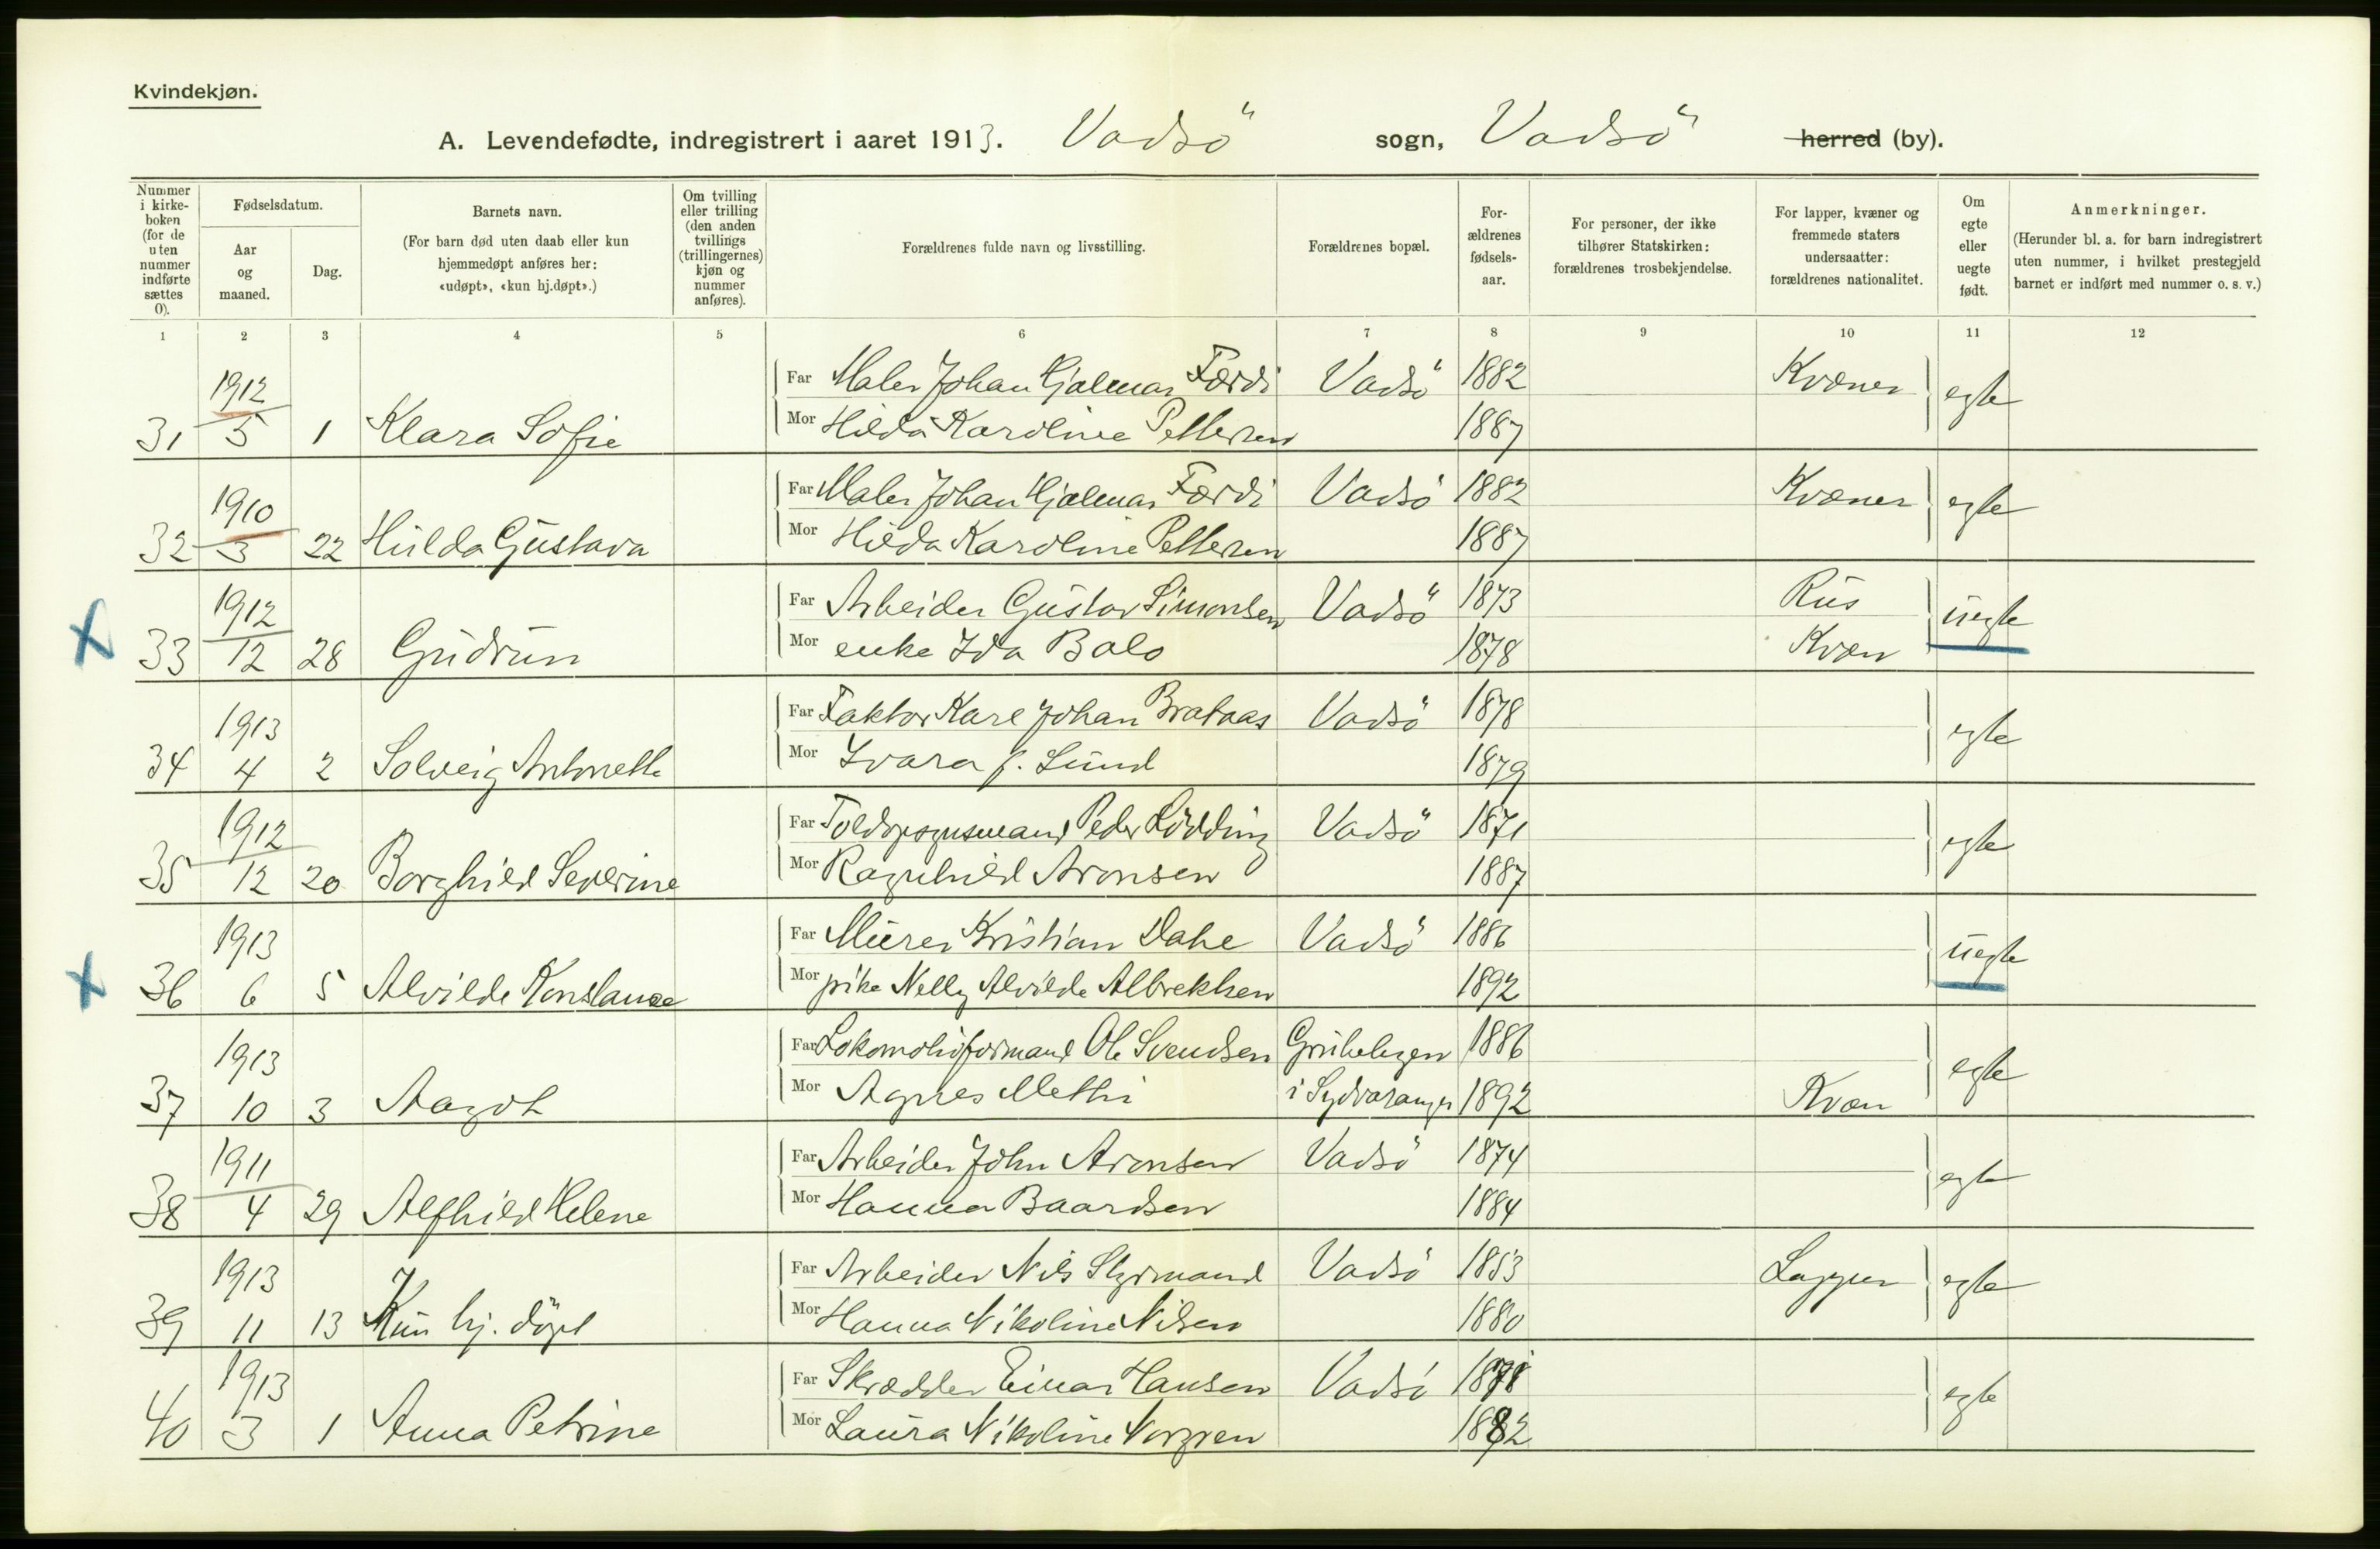 Kvindekjøn.
A. Levendefødte, indregistrert i aaret 1913. Vadsö sogn, Vadsö herred (by).
Nummer i kirkeboken (for de uten nummer indførte sættes 0).
Fødselsdatum.
Aar og maaned.
Dag.
Barnets navn.
(For barn død uten daab eller kun hjemmedøpt anføres her: «udøpt», «kun hj.døpt».)
Om tvilling eller trilling (den anden tvillings (trillingernes) kjøn og nummer anføres).
Forældrenes fulde navn og livsstilling.
Forældrenes bopæl.
Forældrenes fødselsaar.
For personer, der ikke tilhører Statskirken: forældrenes trosbekjendelse.
For lapper, kvæner og fremmede staters undersaatter: forældrenes nationalitet.
Om egte eller uegte født.
Anmerkninger.
(Herunder bl. a. for barn indregistrert uten nummer, i hvilket prestegjeld barnet er indført med nummer o. s. v.)
1 2 3 4 5 6 7 8 9 10 11 12
1912 Far Maler Johan Hjalmar Færdi Vadsö 1882 Kvæner egte
31 5 1 Klara Sofie Mor Hilda Karoline Pettersen 1887
1910 Far Maler Johan Hjalmar Færdi Vadsö 1882 Kvæner egte
32 3 22 Hulda Gustava Mor Hilda Karoline Pettersen 1887
1912 Far Arbeider Gustav Simonsen Vadsö 1873 Rus uegte
x 33 12 28 Gudrun Mor enke Ida Balo 1878 Kvæn
1913 Far Faktor Karl Johan Brataas Vadsö 1878 egte
34 4 2 Solveig Antonette Mor Ivara f. Lund 1879
1912 Far Toldopsynsmand Peder Lödding Vadsö 1871 egte
35 12 20 Borghild Severine Mor Ragnhild Aronsen 1887
1913 Far Murer Kristian Dahl Vadsö 1886 uegte
x 36 6 5 Alvilde Konstanse Mor pike Nelly Alvilde Albrektsen 1892
1913 Far Lokomotivformand Ole Svendsen 1886 egte
37 10 3 Aagot Mor Agnes Mathi i Sydvaranger 1892 Kvæn
1911 Far Arbeider John Aronsen Vadsö 1874 egte
38 4 29 Alfhild Helene Mor Hanna Baardsen 1884
1913 Far Arbeider Nils Styrmand Vadsö 1853 Lapper egte
39 11 13 Kun hj. döpt Mor Hanna Nikoline Nilsen 1880
1913 Far Skrædder Einar Hansen Vadsö egte
40 3 1 Anna Petrine Mor Laura Nikoline Norgren 1882